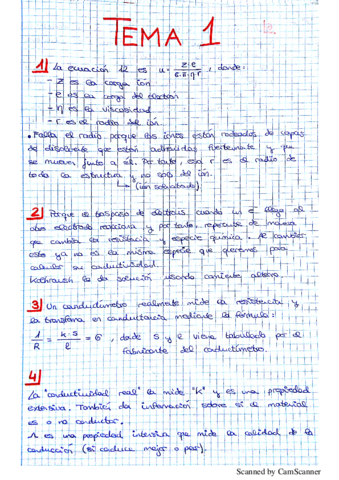 TEMA 1
1) La ecuación 12 es u = z·e / 6·π·η·r, donde:
- z es la carga ion
- e es la carga del electrón
- η es la viscosidad
- r es el radio del ion.
• Falla el radio porque los iones están rodeados de capas
de disolvente que están adheridas fuertemente y que
se mueven junto a él. Por tanto, esa r es el radio de
toda la estructura y no solo del ion.
↳ (ion solvatado)
2) Porque el traspaso de electrones cuando un ē llega al
otro electrodo reacciona y por tanto, repercute de manera
que cambia la resistencia y especie química. Al cambiar
esto ya no es la misma especie que queremos para
calcular su conductividad.
Kohlrausch la da solución usando corriente alterna.
3) Un conductímetro realmente mide la resistencia y
la transforma en conductancia mediante la fórmula:
1/R = k·S/l = G, donde S y l viene tabulado por el
fabricante del conductímetro.
4)
La "conductividad real" la mide "K" y es una propiedad
extensiva. También da información sobre si el material
es o no conductor.
Λ es una propiedad intensiva que mide la calidad de la
conducción (si conduce mejor o peor).
Scanned by CamScanner